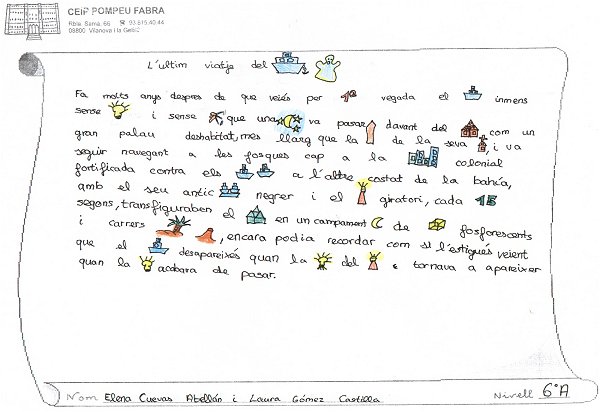 CEIP POMPEU FABRA
Rbla. Samà, 66 ☎ 93 815 40 44
08800 Vilanova i la Geltrú
L'ultim viatje del
Fa molts anys despres de que veiés per 1ª vegada el inmens
sense i sense que una va pasar davant del com un
gran palau deshabitat, mes llarg que la de la seva , i va
seguir navegant a les fosques cap a la colonial
fortificada contra els a l'altre costat de la bahía,
amb el seu antic negrer i el giratori, cada 15
segons, transfiguraben el en un campament de fosforescents
i carrers , encara podia recordar com si l'estigués veient
que el desapareixés quan la del e tornava a apareixer
quan la acabara de pasar.
Nom Elena Cuevas Abellán i Laura Gómez Castilla
Nivell 6ºA